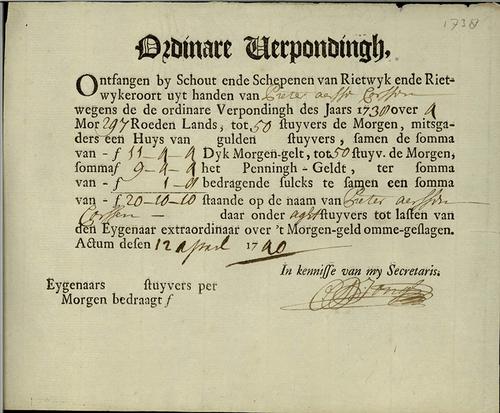 1738
Ordinare Verpondingh,
Ontfangen by Schout ende Schepenen van Rietwyk ende Riet-
wykeroort uyt handen van Pieter aersse Corssen
wegens de de ordinare Verpondingh des Jaars 1738 over 4
Mor 297 Roeden Lands, tot 50 stuyvers de Morgen, mitsga-
ders een Huys van gulden stuyvers, samen de somma
van - f 11-4-4 Dyk Morgen-gelt, tot 50 stuyv. de Morgen,
somma f 9-4-4 het Penningh-Geldt, ter somma
van - f 1-8 bedragende sulcks te samen een somma
van - f 20-10-0 staande op de naam van Pieter aerssen
Corssen - daar onder agt stuyvers tot lasten van
den Eygenaar extraordinaar over 't Morgen-geld omme-geslagen.
Actum desen 12 april 1740
In kennisse van my Secretaris.
Eygenaars stuyvers per
Morgen bedraagt f